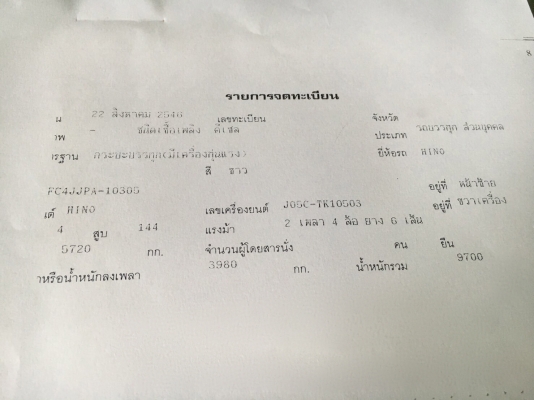 8
รายการจดทะเบียน
น 22 สิงหาคม 2546 เลขทะเบียน จังหวัด
าพ - ชนิดเชื้อเพลิง ดีเซล ประเภท รถบรรทุก ส่วนบุคคล
ารฐาน กระบะบรรทุก(มีเครื่องทุ่นแรง) ยี่ห้อรถ HINO
สี ขาว
FC4JJPA-10305 อยู่ที่ หน้าซ้าย
เต์ HINO เลขเครื่องยนต์ J05C-TK10503 อยู่ที่ ขวาเครื่อง
4 สูบ 144 แรงม้า 2 เพลา 4 ล้อ ยาง 6 เส้น
5720 กก. จำนวนผู้โดยสารนั่ง คน ยืน
าหรือน้ำหนักลงเพลา 3980 กก. น้ำหนักรวม 9700